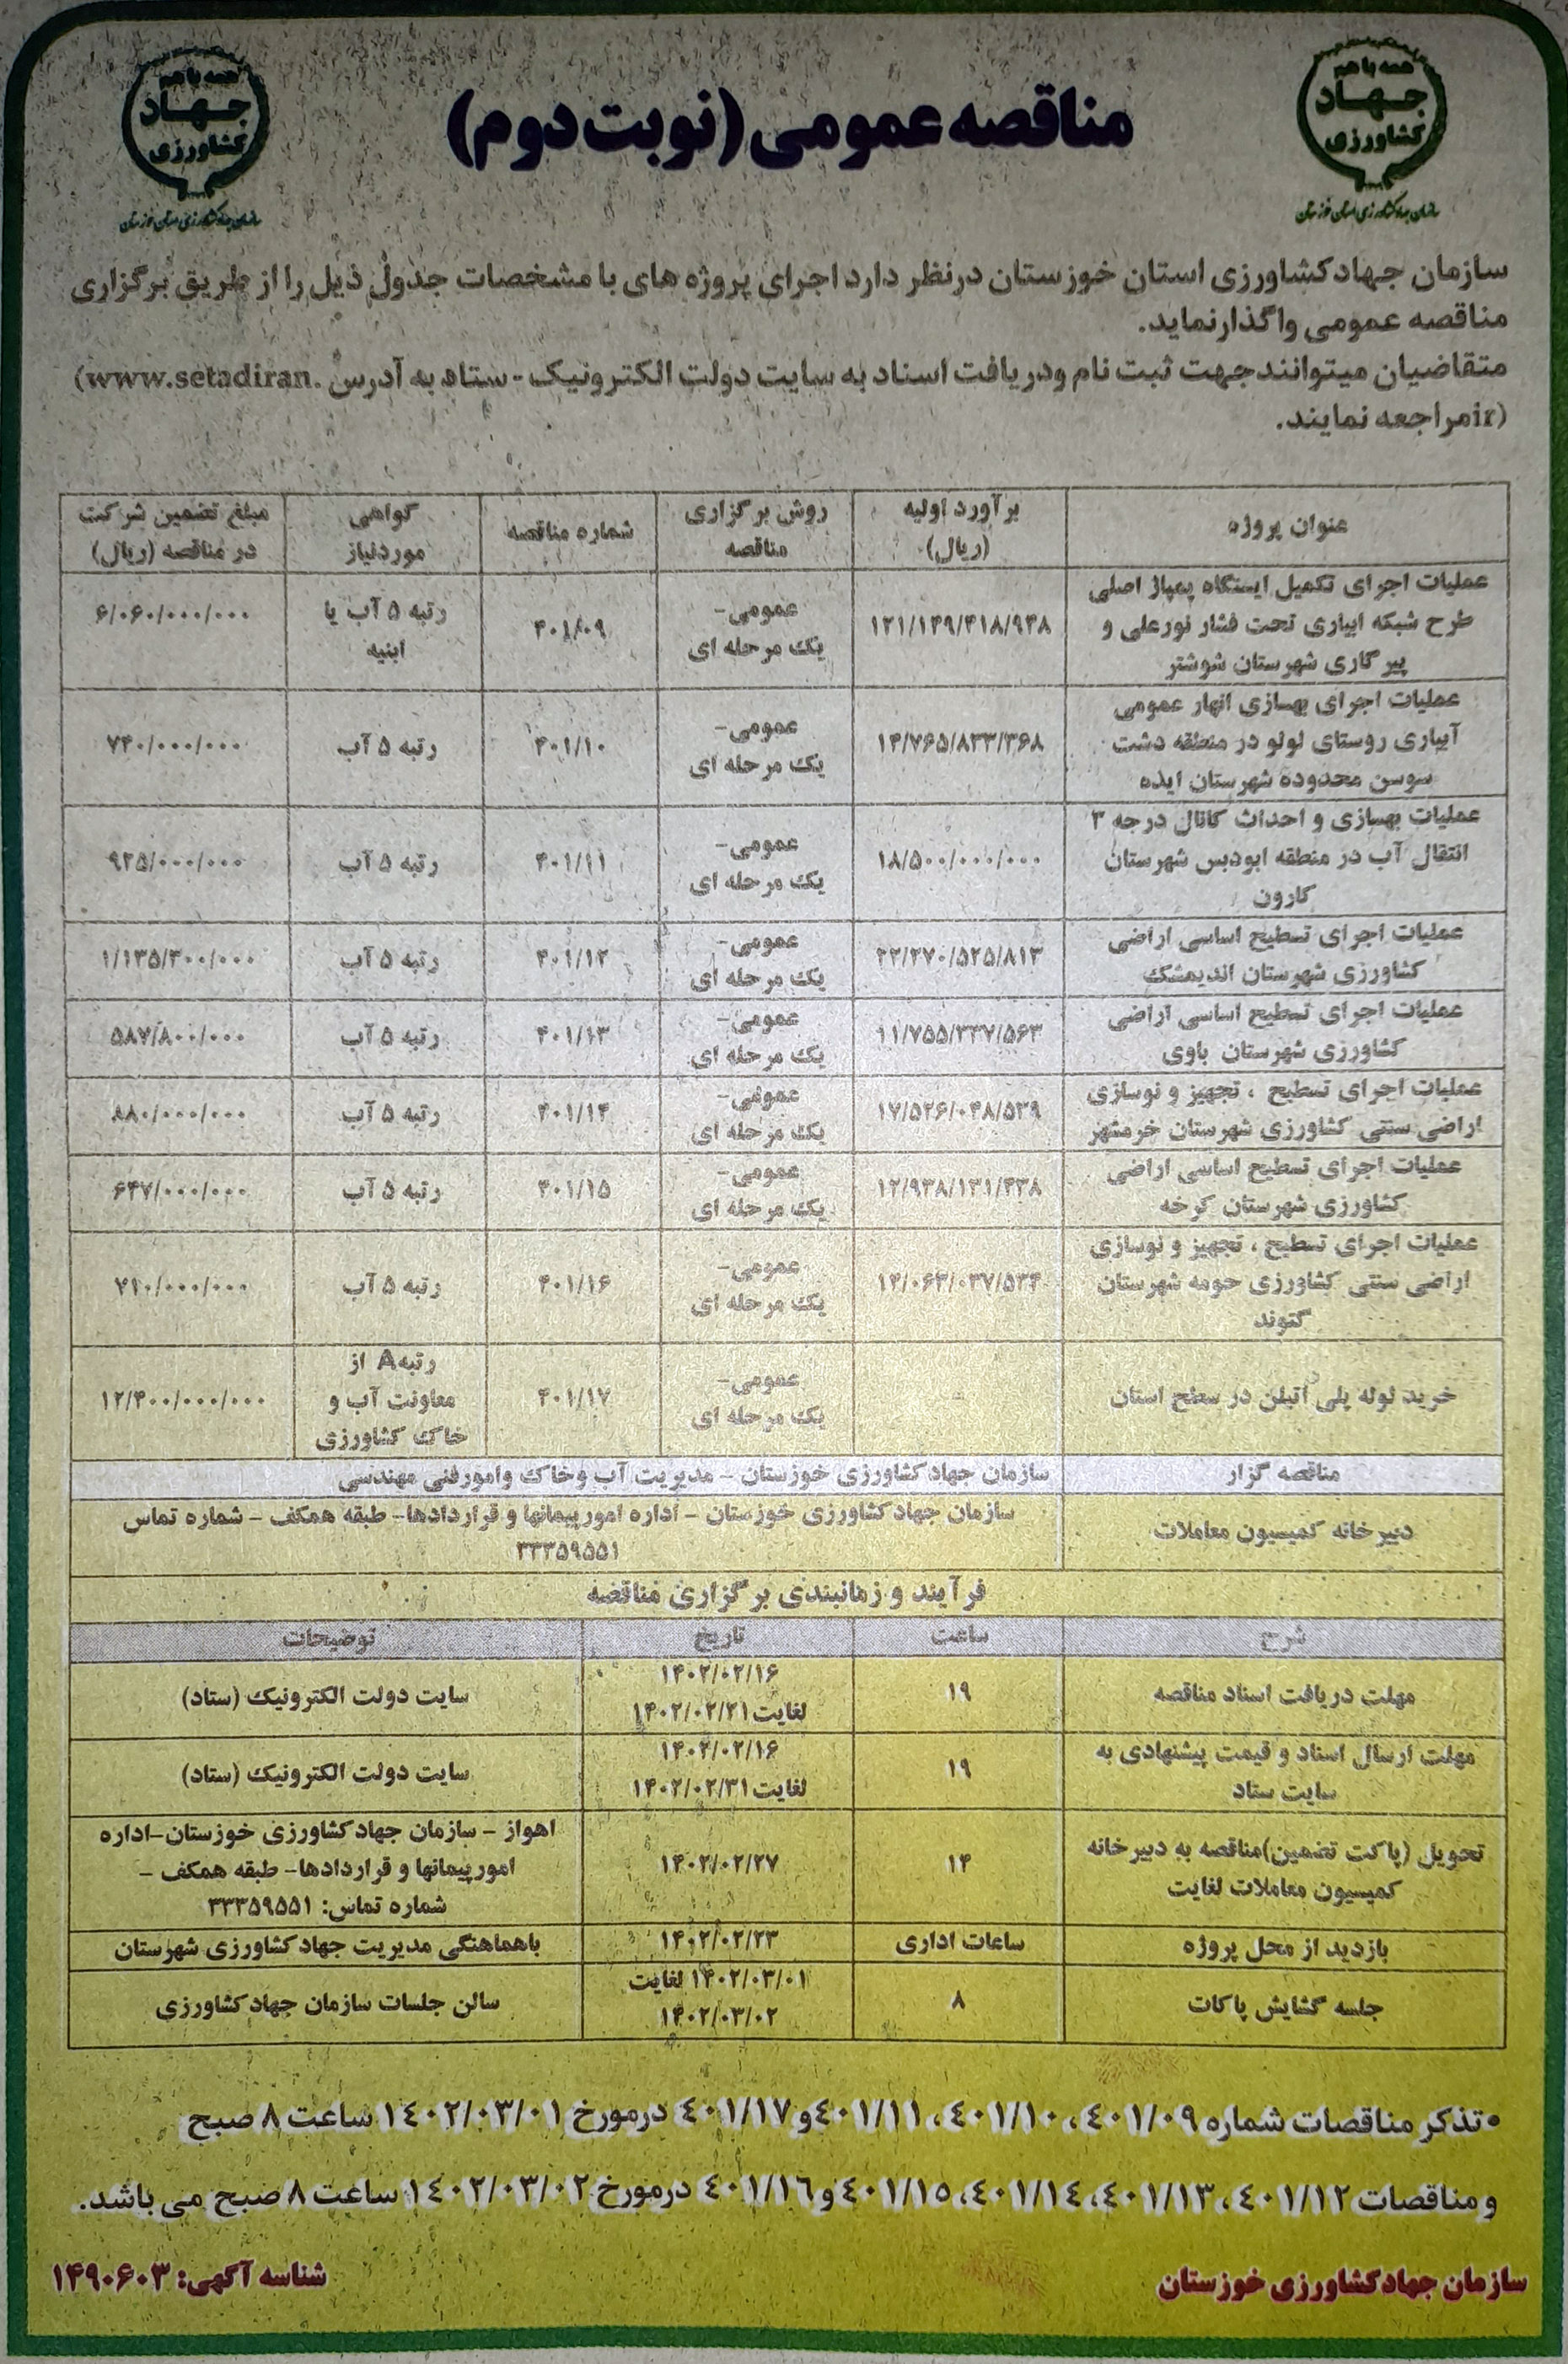 همه با هم
جهاد
کشاورزی
سازمان جهاد کشاورزی استان خوزستان
مناقصه عمومی (نوبت دوم)
همه با هم
جهاد
کشاورزی
سازمان جهاد کشاورزی استان خوزستان
سازمان جهادکشاورزی استان خوزستان درنظر دارد اجرای پروژه های با مشخصات جدول ذیل را از طریق برگزاری
مناقصه عمومی واگذارنماید.
متقاضیان میتوانند جهت ثبت نام ودریافت اسناد به سایت دولت الکترونیک - ستاد به آدرس (www.setadiran.
ir) مراجعه نمایند.
عنوان پروژه | برآورد اولیه (ریال) | روش برگزاری مناقصه | شماره مناقصه | گواهی موردنیاز | مبلغ تضمین شرکت در مناقصه (ریال)
عملیات اجرای تکمیل ایستگاه پمپاژ اصلی طرح شبکه ابیاری تحت فشار نورعلی و پیرگاری شهرستان شوشتر | ۱۲۱/۱۴۹/۴۱۸/۹۴۸ | عمومی- یک مرحله ای | ۴۰۱/۰۹ | رتبه ۵ آب یا ابنیه | ۶/۰۶۰/۰۰۰/۰۰۰
عملیات اجرای بهسازی انهار عمومی آبیاری روستای لولو در منطقه دشت سوسن محدوده شهرستان ایذه | ۱۴/۷۶۵/۸۳۳/۳۶۸ | عمومی- یک مرحله ای | ۴۰۱/۱۰ | رتبه ۵ آب | ۷۴۰/۰۰۰/۰۰۰
عملیات بهسازی و احداث کانال درجه ۳ انتقال آب در منطقه ابودبس شهرستان کارون | ۱۸/۵۰۰/۰۰۰/۰۰۰ | عمومی- یک مرحله ای | ۴۰۱/۱۱ | رتبه ۵ آب | ۹۲۵/۰۰۰/۰۰۰
عملیات اجرای تسطیح اساسی اراضی کشاورزی شهرستان اندیمشک | ۲۲/۲۷۰/۵۲۵/۸۱۳ | عمومی- یک مرحله ای | ۴۰۱/۱۲ | رتبه ۵ آب | ۱/۱۳۵/۳۰۰/۰۰۰
عملیات اجرای تسطیح اساسی اراضی کشاورزی شهرستان باوی | ۱۱/۷۵۵/۳۳۷/۵۶۳ | عمومی- یک مرحله ای | ۴۰۱/۱۳ | رتبه ۵ آب | ۵۸۷/۸۰۰/۰۰۰
عملیات اجرای تسطیح ، تجهیز و نوسازی اراضی سنتی کشاورزی شهرستان خرمشهر | ۱۷/۵۲۶/۰۴۸/۵۳۹ | عمومی- یک مرحله ای | ۴۰۱/۱۴ | رتبه ۵ آب | ۸۸۰/۰۰۰/۰۰۰
عملیات اجرای تسطیح اساسی اراضی کشاورزی شهرستان کرخه | ۱۲/۹۳۸/۱۳۱/۴۳۸ | عمومی- یک مرحله ای | ۴۰۱/۱۵ | رتبه ۵ آب | ۶۴۷/۰۰۰/۰۰۰
عملیات اجرای تسطیح ، تجهیز و نوسازی اراضی سنتی کشاورزی حومه شهرستان گتوند | ۱۴/۰۶۳/۰۳۷/۵۳۴ | عمومی- یک مرحله ای | ۴۰۱/۱۶ | رتبه ۵ آب | ۷۱۰/۰۰۰/۰۰۰
خرید لوله پلی اتیلن در سطح استان | - | عمومی- یک مرحله ای | ۴۰۱/۱۷ | رتبه A از معاونت آب و خاک کشاورزی | ۱۲/۴۰۰/۰۰۰/۰۰۰
مناقصه گزار | سازمان جهاد کشاورزی خوزستان - مدیریت آب وخاک وامورفنی مهندسی
دبیرخانه کمیسیون معاملات | سازمان جهادکشاورزی خوزستان - اداره امورپیمانها و قراردادها- طبقه همکف - شماره تماس ۳۳۳۵۹۵۵۱
فرآیند و زمانبندی برگزاری مناقصه
شرح | ساعت | تاریخ | توضیحات
مهلت دریافت اسناد مناقصه | ۱۹ | ۱۴۰۲/۰۲/۱۶ لغایت ۱۴۰۲/۰۲/۲۱ | سایت دولت الکترونیک (ستاد)
مهلت ارسال اسناد و قیمت پیشنهادی به سایت ستاد | ۱۹ | ۱۴۰۲/۰۲/۱۶ لغایت ۱۴۰۲/۰۲/۳۱ | سایت دولت الکترونیک (ستاد)
تحویل (پاکت تضمین)مناقصه به دبیرخانه کمیسیون معاملات لغایت | ۱۴ | ۱۴۰۲/۰۲/۲۷ | اهواز - سازمان جهادکشاورزی خوزستان-اداره امورپیمانها و قراردادها- طبقه همکف - شماره تماس: ۳۳۳۵۹۵۵۱
بازدید از محل پروژه | ساعات اداری | ۱۴۰۲/۰۲/۲۳ | باهماهنگی مدیریت جهادکشاورزی شهرستان
جلسه گشایش پاکات | ۸ | ۱۴۰۲/۰۳/۰۱ لغایت ۱۴۰۲/۰۳/۰۲ | سالن جلسات سازمان جهادکشاورزی
•تذکر مناقصات شماره ٤٠١/٠٩، ٤٠١/١٠، ٤٠١/١١و٤٠١/١٧ درمورخ ١٤٠٢/٠٣/٠١ ساعت ٨ صبح
و مناقصات ٤٠١/١٢، ٤٠١/١٣، ٤٠١/١٤، ٤٠١/١٥و٤٠١/١٦ درمورخ ١٤٠٢/٠٣/٠٢ ساعت ٨ صبح می باشد.
سازمان جهادکشاورزی خوزستان
شناسه آگهی: ۱۴۹۰۶۰۳